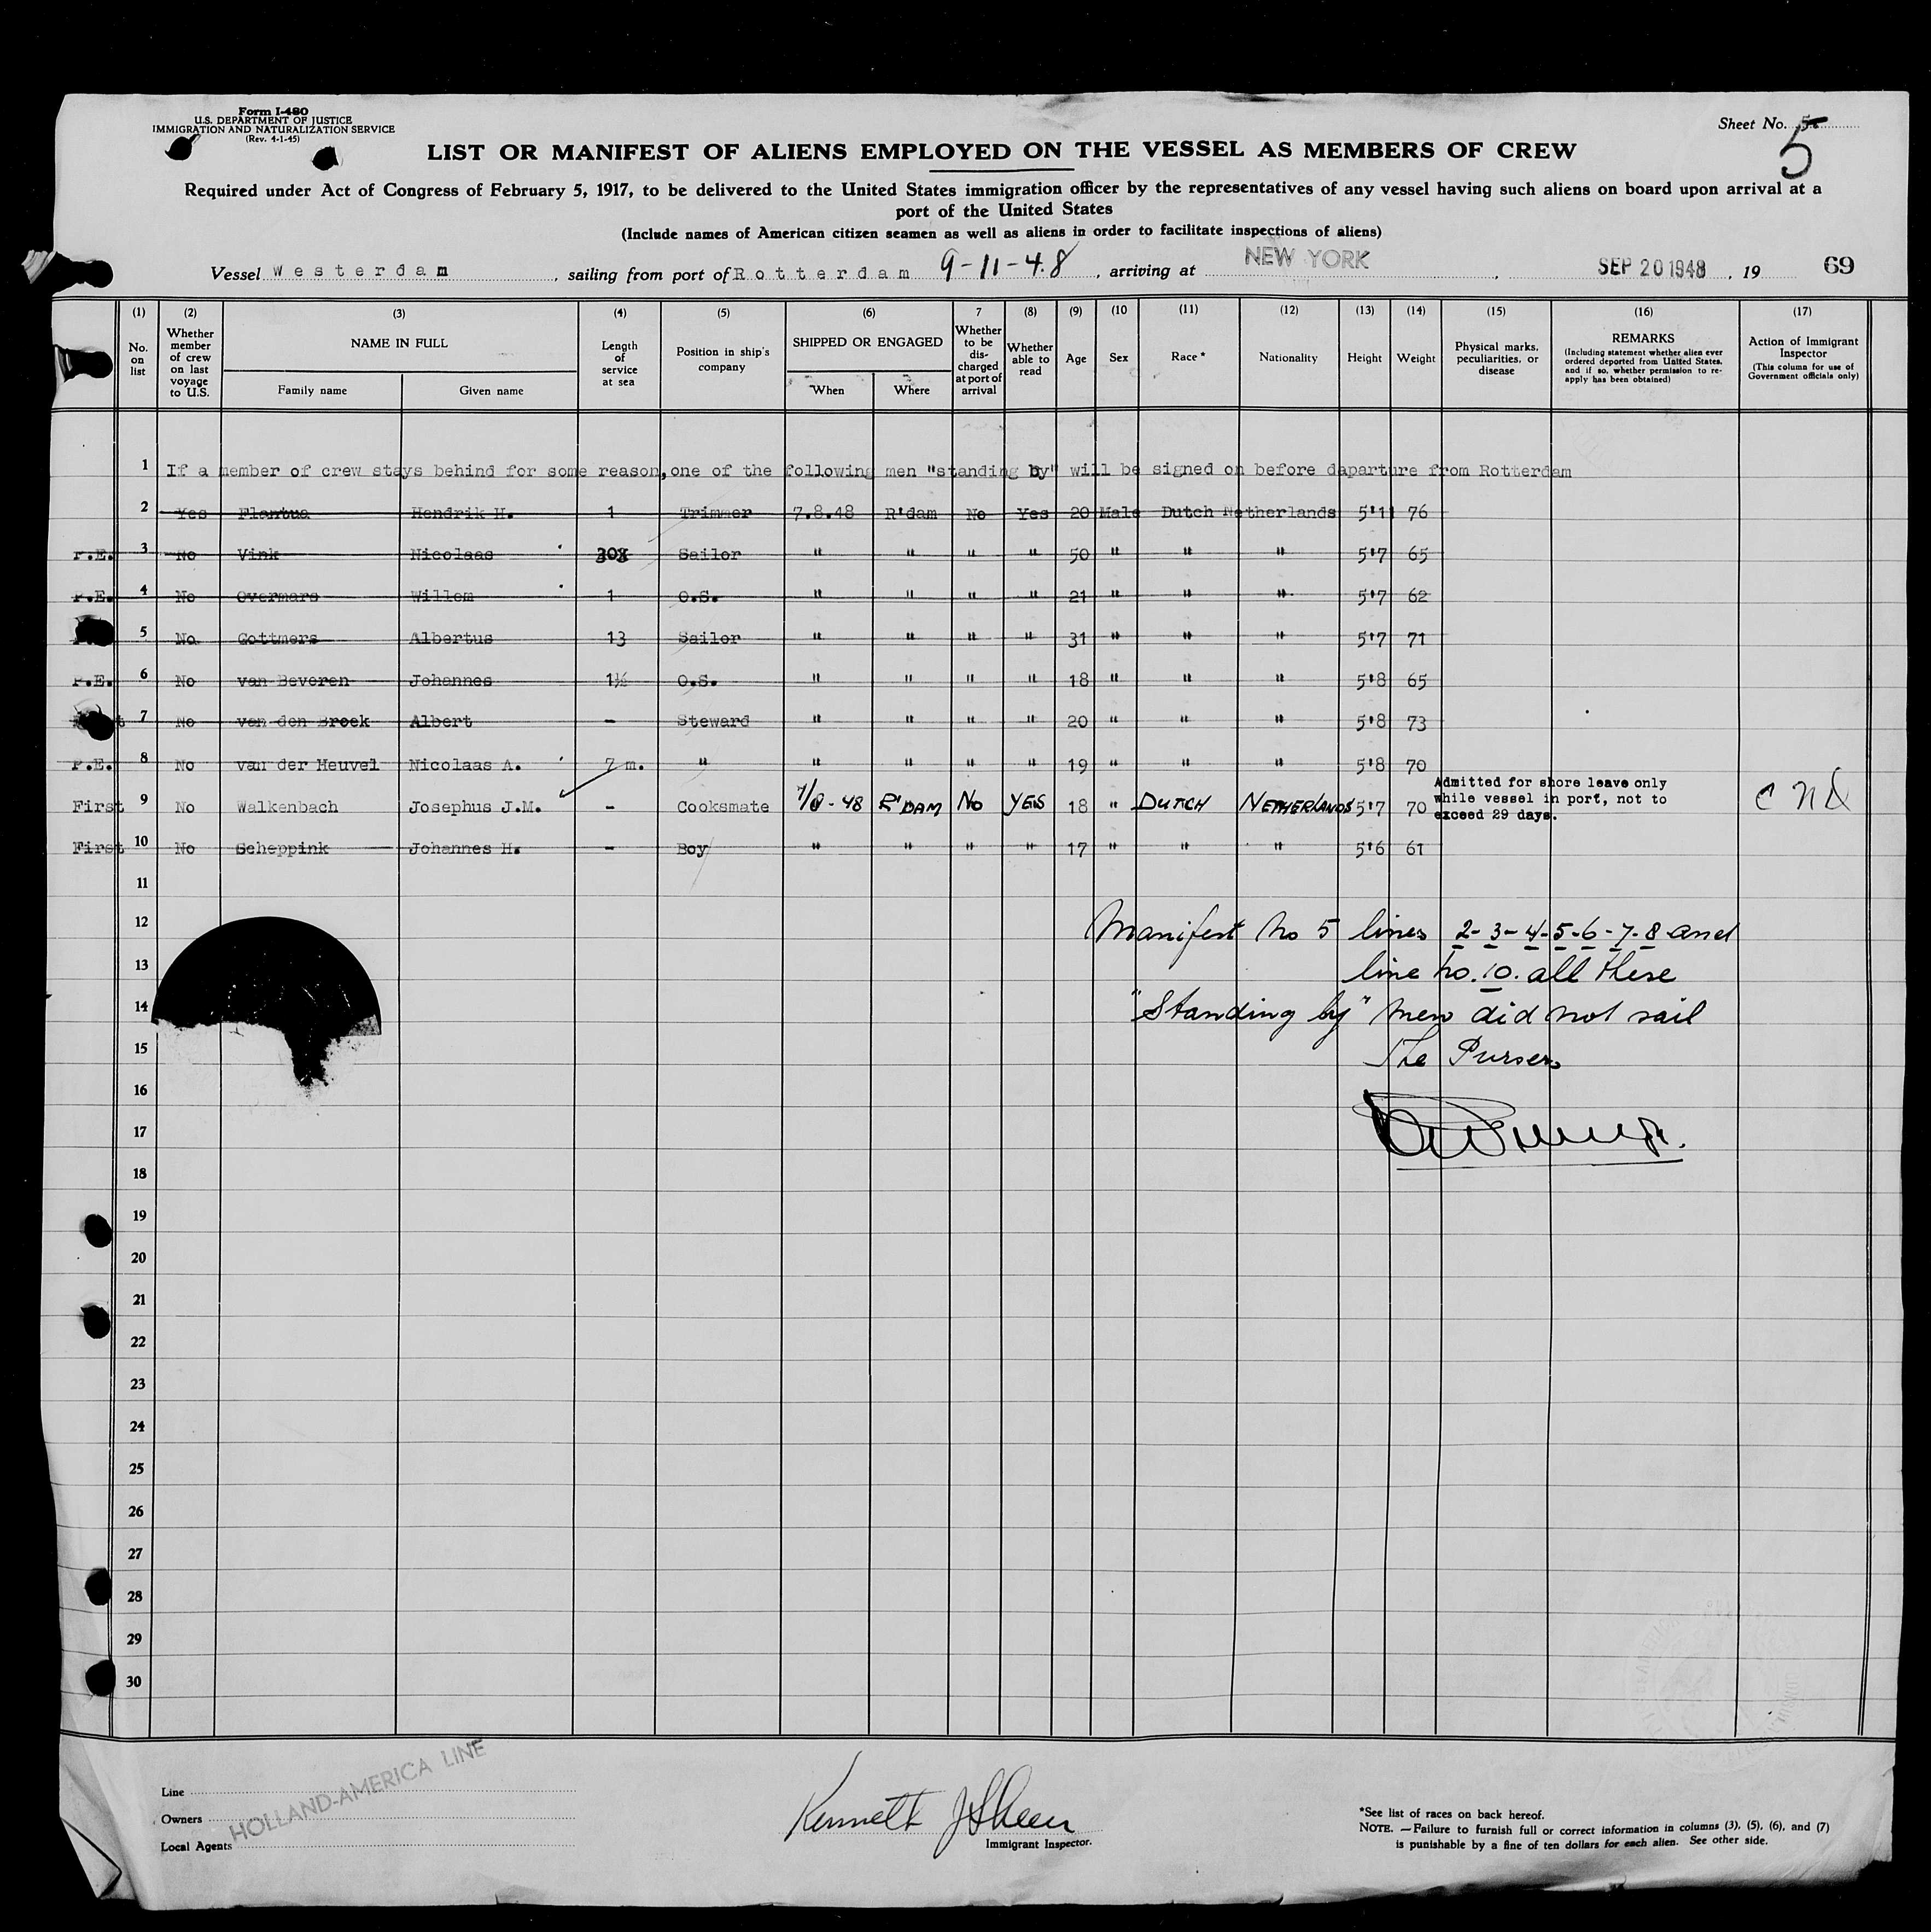 Form I-480
U.S. DEPARTMENT OF JUSTICE
IMMIGRATION AND NATURALIZATION SERVICE
(Rev. 4-1-45)
Sheet No. 5
5
LIST OR MANIFEST OF ALIENS EMPLOYED ON THE VESSEL AS MEMBERS OF CREW
Required under Act of Congress of February 5, 1917, to be delivered to the United States immigration officer by the representatives of any vessel having such aliens on board upon arrival at a
port of the United States
(Include names of American citizen seamen as well as aliens in order to facilitate inspections of aliens)
Vessel Westerdam, sailing from port of Rotterdam 9-11-48, arriving at NEW YORK, SEP 20 1948, 19 69
(1) (2) (3) (4) (5) (6) 7 (8) (9) (10 (11) (12) (13) (14) (15) (16) (17)
No. on list
Whether member of crew on last voyage to U.S.
NAME IN FULL
Family name
Given name
Length of service at sea
Position in ship's company
SHIPPED OR ENGAGED
When
Where
Whether to be discharged at port of arrival
Whether able to read
Age
Sex
Race *
Nationality
Height
Weight
Physical marks, peculiarities, or disease
REMARKS
(Including statement whether alien ever ordered deported from United States, and if so, whether permission to re-apply has been obtained)
Action of Immigrant Inspector
(This column for use of Government officials only)
1 If a member of crew stays behind for some reason, one of the following men "standing by" will be signed on before daparture from Rotterdam
2 Yes Flantua Hendrik H. 1 Trimmer 7.8.48 R'dam No Yes 20 Male Dutch Netherlands 5'11 76
P.E. 3 No Vink Nicolaas 30 Sailor " " " " 50 " " " 5'7 65
P.E. 4 No Overmars Willem 1 O.S. " " " " 21 " " " 5'7 62
5 No Gottmers Albertus 13 Sailor " " " " 31 " " " 5'7 71
P.E. 6 No van Beveren Johannes 1½ O.S. " " " " 18 " " " 5'8 65
7 No van den Broek Albert - Steward " " " " 20 " " " 5'8 73
P.E. 8 No van der Heuvel Nicolaas A. 7 m. " " " " " 19 " " " 5'8 70
First 9 No Walkenbach Josephus J.M. - Cooksmate 7/8-48 R'DAM No YES 18 " DUTCH NETHERLANDS 5'7 70 Admitted for shore leave only while vessel in port, not to exceed 29 days.
First 10 No Scheppink Johannes H. - Boy " " " " 17 " " " 5'6 61
11
12
13
14
15
16
17
18
19
20
21
22
23
24
25
26
27
28
29
30
Manifest No 5 lines 2-3-4-5-6-7-8 and
line no. 10. all these
"Standing by" men did not sail
The Purser
Line
Owners
Local Agents
HOLLAND-AMERICA LINE
Kenneth J Sheen
Immigrant Inspector.
*See list of races on back hereof.
NOTE. —Failure to furnish full or correct information in columns (3), (5), (6), and (7)
is punishable by a fine of ten dollars for each alien. See other side.